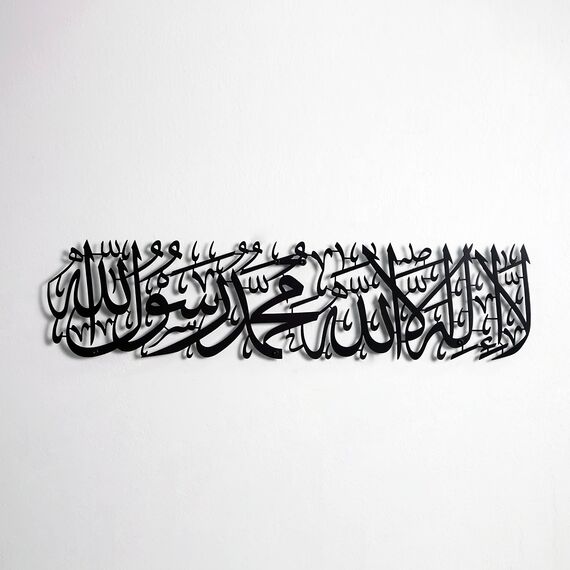 لَا إِلٰهَ إِلَّا اللّٰه مُحَمَّد رَسُولُ اللّٰه